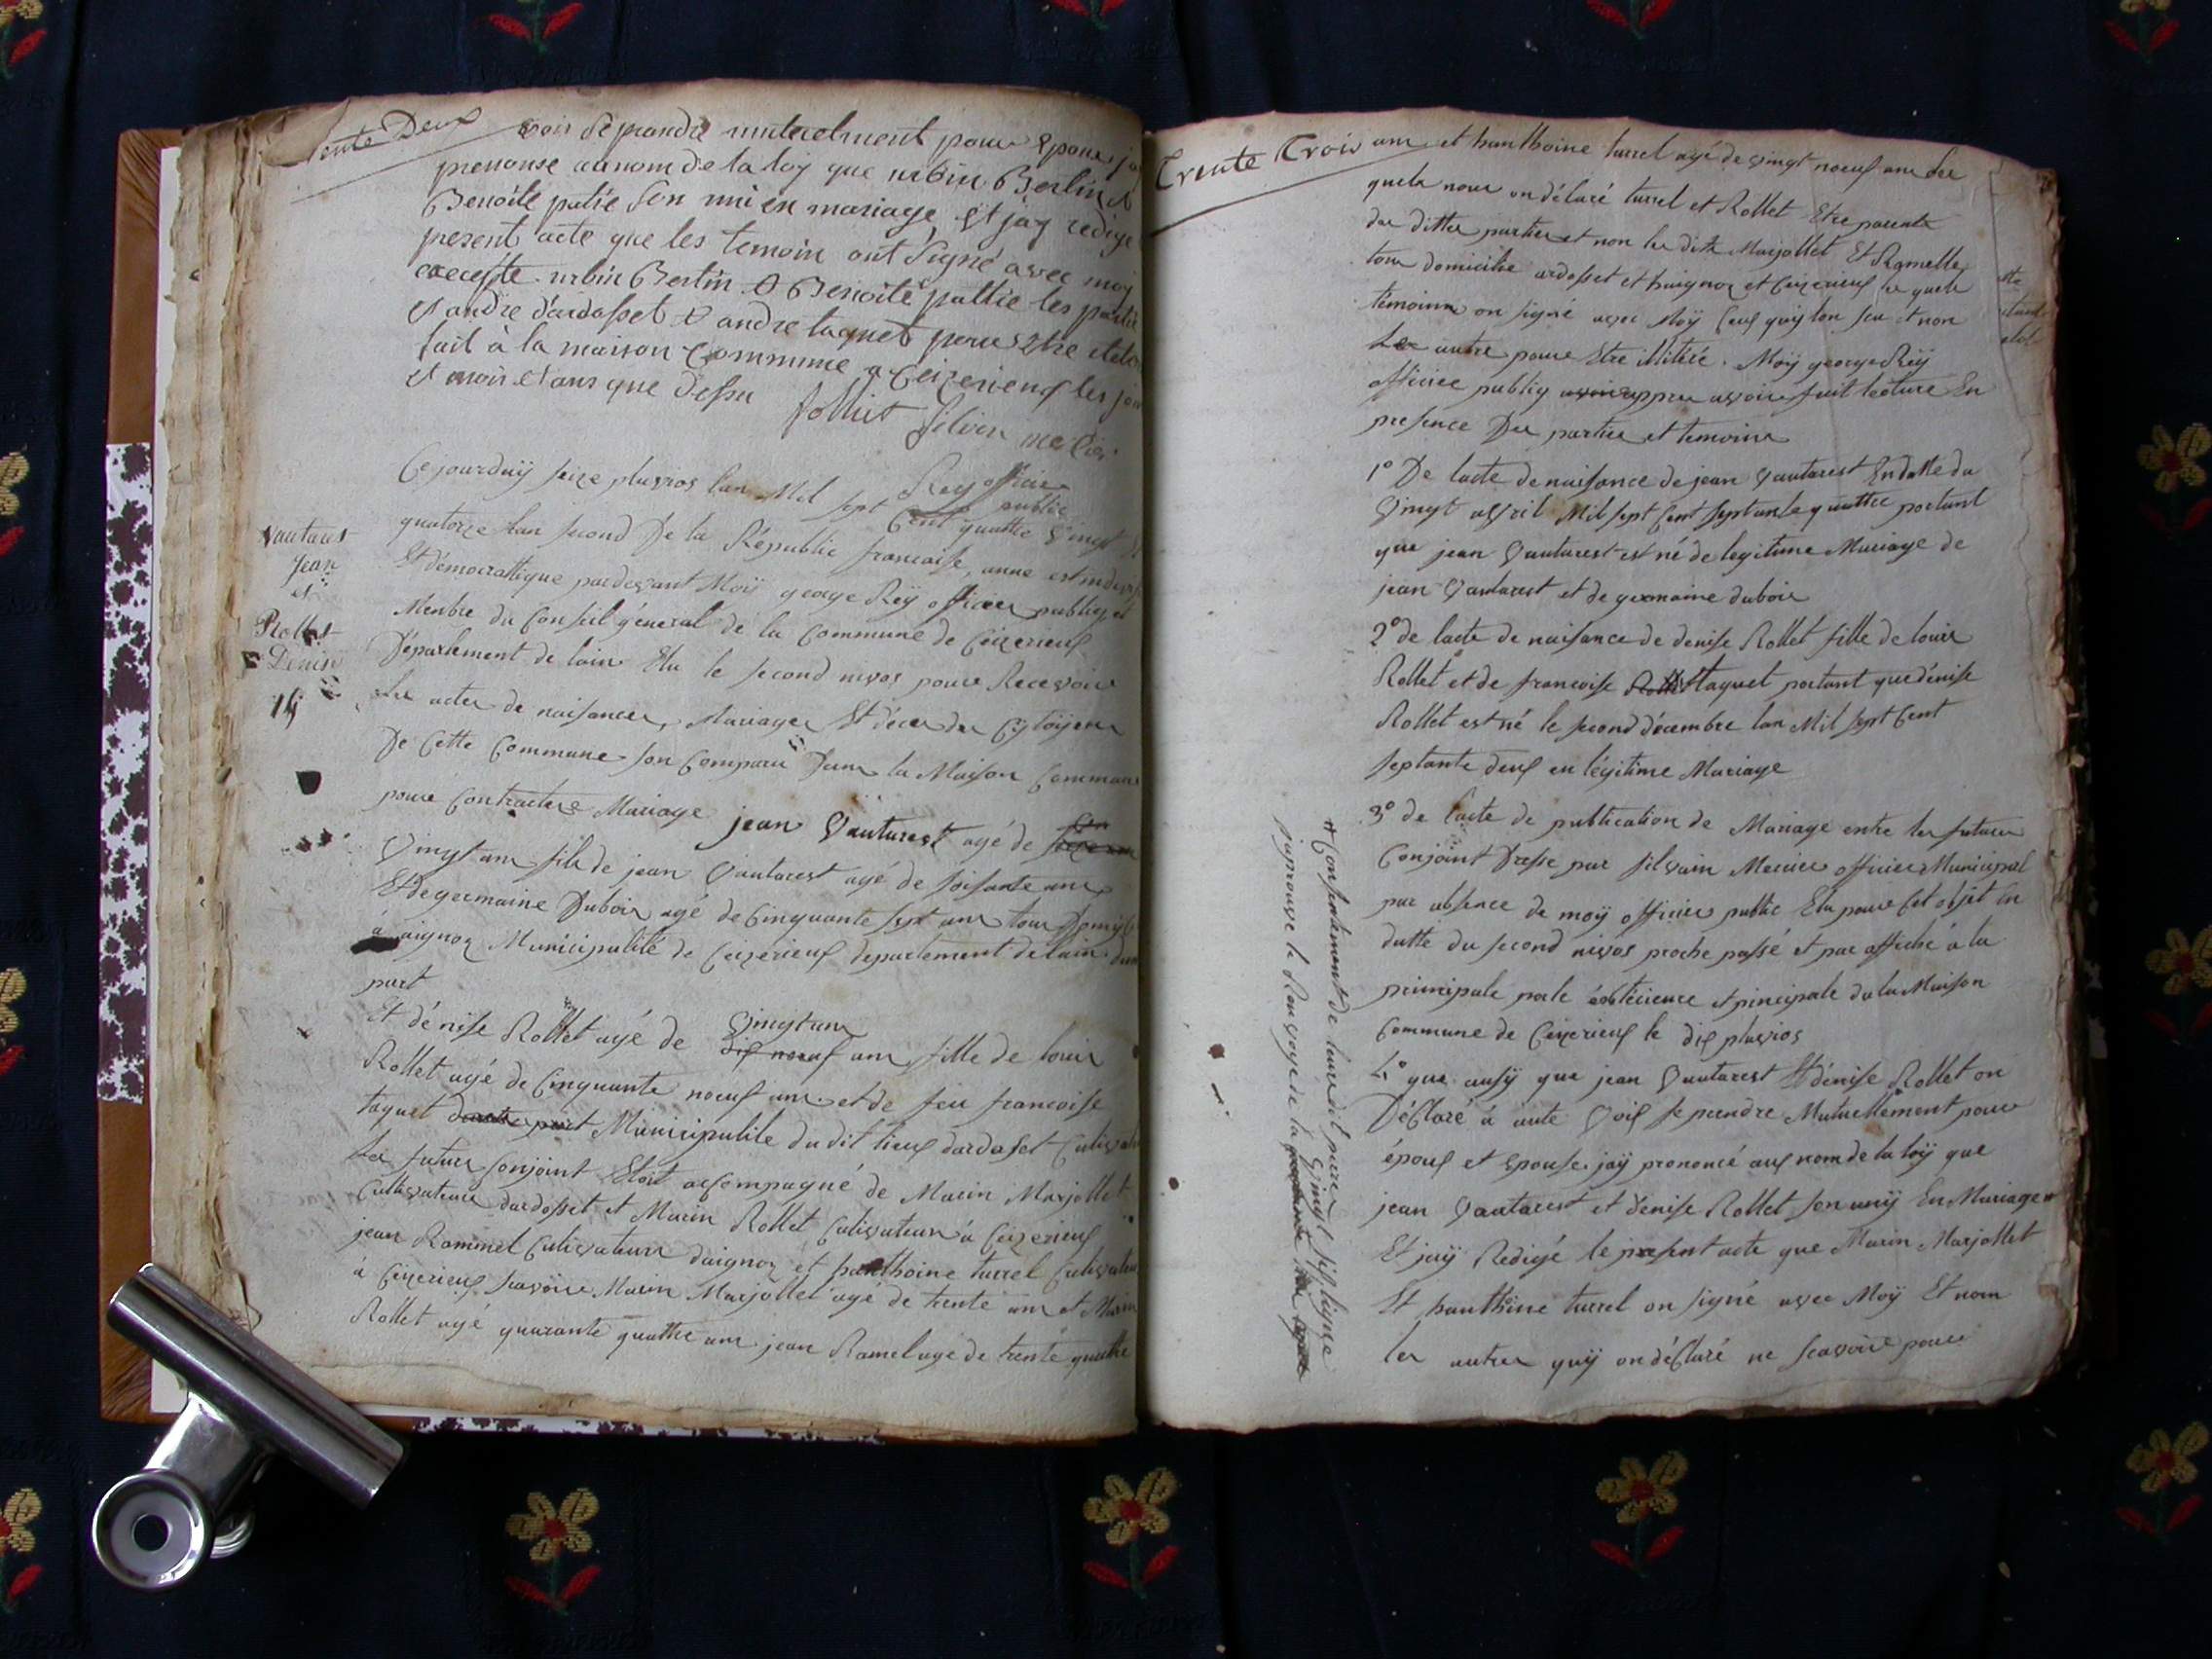 trente Deux
voir se prandre mutuelment pour Epoux ja
prenonse au nom de la loy que urbin Berlin et
Benoite patie son uni en mariage, Et jay redige
present acte que les temoin ont signé avec moy
excepte urbin Berlin & Benoite pattie les partie
et andre dardosset & andre taquet pour Etre
fait à la maison Commune a Ceizerieux les jou
et mois et ans que dessu
folliet silvin mercier
Rey officier
public
Vautaret
Jean
et
Rollet
Denise
14
Cejourduÿ seize pluvios lan Mil sept Cent quattre Vingt
quatorze lan second De la Républic francaise, unne est indiv
Et démocrattique pardevant Moÿ george Reÿ officier publiq et
Menbre du Conseil géneral de la Commune de Ceizerieux
Département de lain Elu le second nivos pour Recevoir
Les actes de naisances, Mariages Et déces des Cytoÿens
De Cette Commune son Comparu Dans la Maison Commune
pour Contractere Mariage jean Vautarest agé de
Vingt ans fils de jean Vautarest agé de soisante ans
Et de germaine Dubois agé de Cinquante sept ans tous Domicil
à aignoz Municipalité de Ceizerieux departement de lain dun
part
Et dénise Rollet agé de Vingt ans
dix noeuf ans fille de louis
Rollet agé de Cinquante noeuf ans et de feu francoise
taquet daute part Municipalite du dit lieux dardoset Cultivat
Les futurs Conjoint Etoit acCompagné de Marin Marjollet
Cultivateur dardosset et Marin Rollet Cultivateur à Ceizerieux
jean Rammel Cultivateur daignoz et hanthoine turrel Cultivateu
à Ceizerieux scavoire Marin Marjollet agé de trente ans et Marin
Rollet agé quarante quattre ans jean Ramel agé de trente quattre
Trente Trois
ans et hanthoine turrel agé de vingt noeuf ans les
quels nous on déclaré turrel et Rollet Etre parents
des dittes parties et non les dits Marjollet Et Ramelle
tous domicilié ardosset et haignoz et Ceizerieux les quels
témoinns on signé avec Moÿ Ceux quy lon scu et non
Les autre pour Etre illitéré. Moÿ george Reÿ
officier publiq avoir appres avoire fait lecture En
presence Des parties et temoins
1º De lacte de naisance de jean Vautarest En datte du
Vingt avril Mil sept Cent septante quattre portant
que jean Vautarest est né de legitime Mariage de
jean Vautarest et de germaine dubois
2º de lacte de naisance de denise Rollet fille de louis
Rollet et de francoise Rollet taquet portant que dénise
Rollet est né le second décembre lan Mil sept Cent
septante deux en légitime Mariage
3º de lacte de publication de Mariage entre les futurs
Conjoint Dresse par silvain Mercier officier Municipal
par absence de moÿ officier public Elu pour Cet objet En
datte du second nivos proche passé et par affiché à la
principale porte éxterieure et principale de la Maison
Commune de Ceizerieux le dix pluvios
4º que ausÿ que jean Vautarest Et dénise Rollet on
DéClaré à aute Voix se prendre Mutuellement pour
époux et épouse jaÿ prononcé aux nom de la loÿ que
jean Vautarest et denise Rollet son unÿ En Mariage
Et jaÿ Redigé le present acte que Marin Marjollet
Et hanthoine turrel on signé avec Moÿ Et nom
les autres quÿ on déClaré ne scavoire pour
Consentement de leurs dit pere Vingt six ligne
japrouve le Renvoye de la